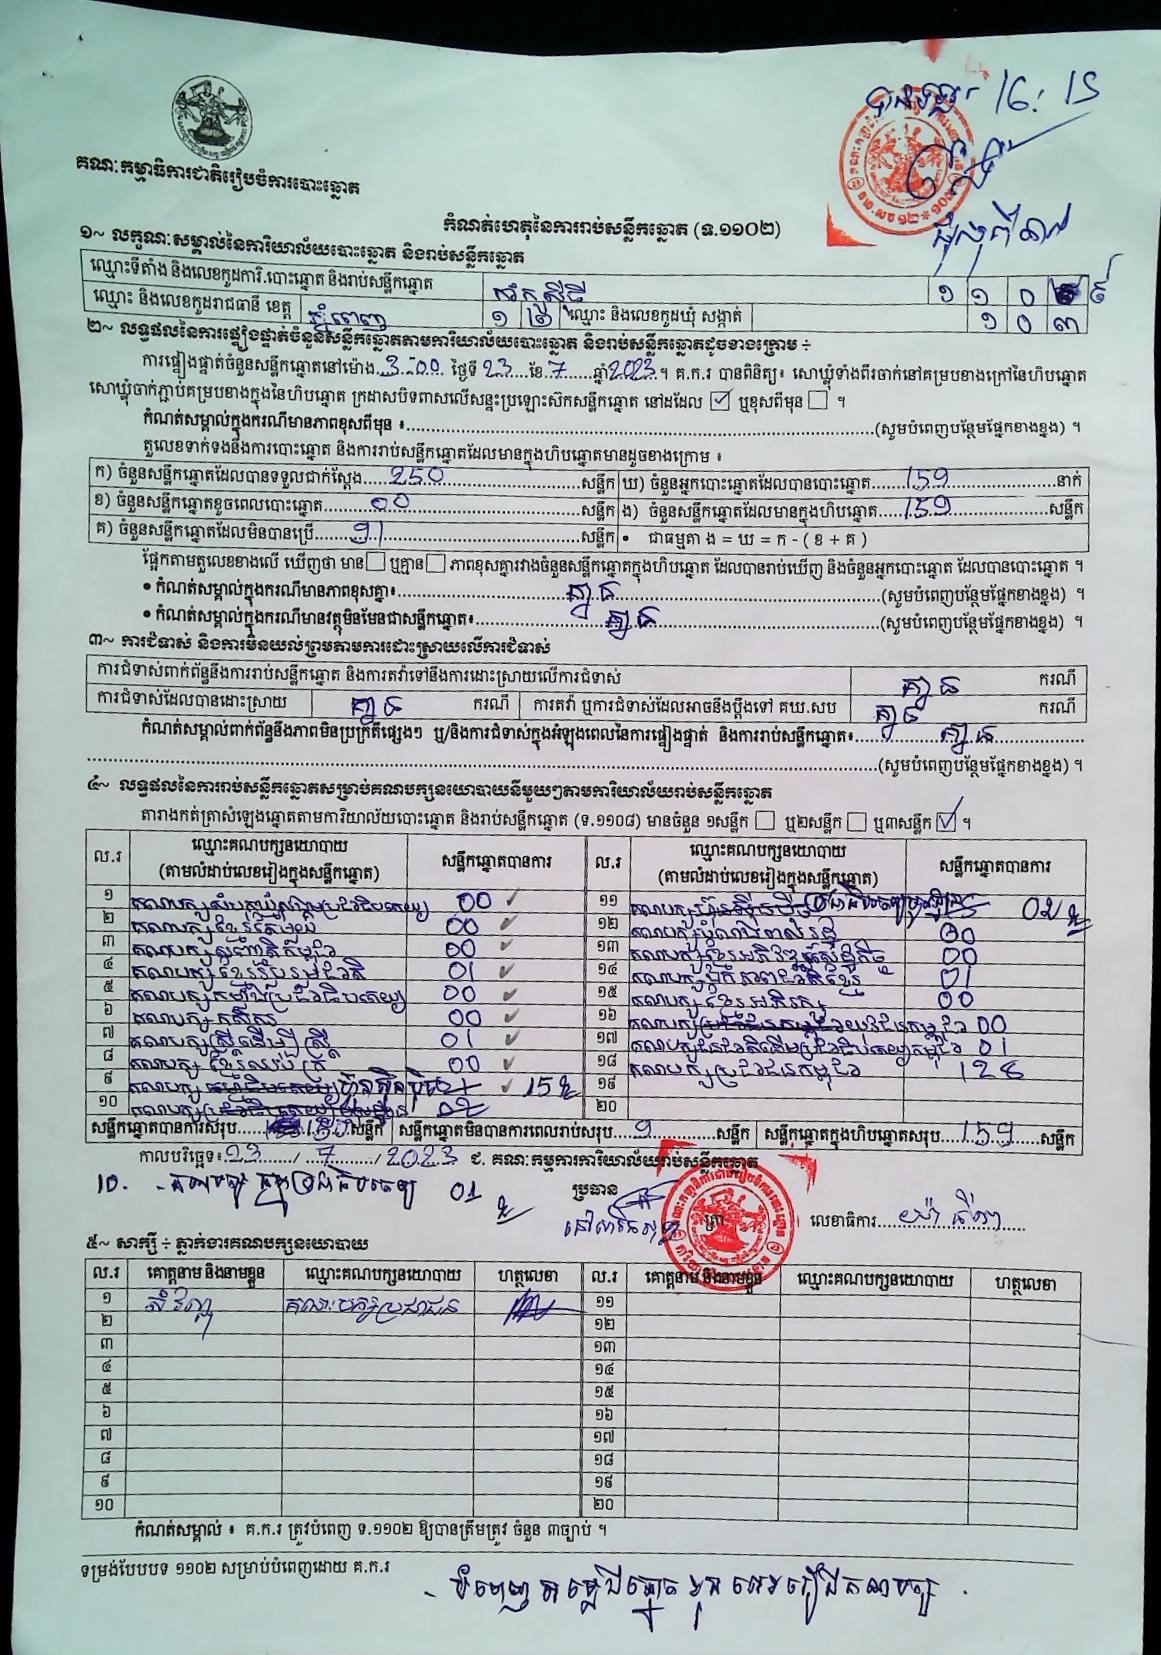 16:15
គណៈកម្មាធិការជាតិរៀបចំការបោះឆ្នោត
កំណត់ហេតុនៃការរាប់សន្លឹកឆ្នោត (ទ.១១០២)
១~ លក្ខណៈសម្គាល់នៃការិយាល័យបោះឆ្នោត និងរាប់សន្លឹកឆ្នោត
ឈ្មោះទីតាំង និងលេខកូដការិ.បោះឆ្នោត និងរាប់សន្លឹកឆ្នោត ១ ១ ០
ឈ្មោះ និងលេខកូដរាជធានី ខេត្ត ភ្នំពេញ ១ ២ ឈ្មោះ និងលេខកូដឃុំ សង្កាត់ ១ ០ ៣
២~ លទ្ធផលនៃការផ្ទៀងផ្ទាត់ចំនួនសន្លឹកឆ្នោតតាមការិយាល័យបោះឆ្នោត និងរាប់សន្លឹកឆ្នោតដូចខាងក្រោម ÷
ការផ្ទៀងផ្ទាត់ចំនួនសន្លឹកឆ្នោតនៅម៉ោង 3-00 ថ្ងៃទី 23 ខែ 7 ឆ្នាំ 2023 ។ គ.ក.រ បានពិនិត្យ៖ សោឃ្លុំទាំងពីរចាក់នៅគម្របខាងក្រៅនៃហិបឆ្នោត
សោឃ្លុំចាក់ភ្ជាប់គម្របខាងក្នុងនៃហិបឆ្នោត ក្រដាសបិទពាសលើសន្ទះប្រឡោះស៊កសន្លឹកឆ្នោត នៅដដែល ☑ ឬខុសពីមុន ☐ ។
កំណត់សម្គាល់ក្នុងករណីមានភាពខុសពីមុន ៖ (សូមបំពេញបន្ថែមផ្នែកខាងខ្នង) ។
តួលេខទាក់ទងនឹងការបោះឆ្នោត និងការរាប់សន្លឹកឆ្នោតដែលមានក្នុងហិបឆ្នោតមានដូចខាងក្រោម ៖
ក) ចំនួនសន្លឹកឆ្នោតដែលបានទទួលជាក់ស្តែង 250 សន្លឹក ឃ) ចំនួនអ្នកបោះឆ្នោតដែលបានបោះឆ្នោត 159 នាក់
ខ) ចំនួនសន្លឹកឆ្នោតខូចពេលបោះឆ្នោត 00 សន្លឹក ង) ចំនួនសន្លឹកឆ្នោតដែលមានក្នុងហិបឆ្នោត 159 សន្លឹក
គ) ចំនួនសន្លឹកឆ្នោតដែលមិនបានប្រើ 91 សន្លឹក • ជាធម្មតា ង = ឃ = ក - ( ខ + គ )
ផ្អែកតាមតួលេខខាងលើ ឃើញថា មាន ☐ ឬគ្មាន ☐ ភាពខុសគ្នារវាងចំនួនសន្លឹកឆ្នោតក្នុងហិបឆ្នោត ដែលបានរាប់ឃើញ និងចំនួនអ្នកបោះឆ្នោត ដែលបានបោះឆ្នោត ។
• កំណត់សម្គាល់ក្នុងករណីមានភាពខុសគ្នា៖ គ្មាន (សូមបំពេញបន្ថែមផ្នែកខាងខ្នង) ។
• កំណត់សម្គាល់ក្នុងករណីមានវត្ថុមិនមែនជាសន្លឹកឆ្នោត៖ គ្មាន (សូមបំពេញបន្ថែមផ្នែកខាងខ្នង) ។
៣~ ការជំទាស់ និងការមិនយល់ព្រមតាមការដោះស្រាយលើការជំទាស់
ការជំទាស់ពាក់ព័ន្ធនឹងការរាប់សន្លឹកឆ្នោត និងការតវ៉ាទៅនឹងការដោះស្រាយលើការជំទាស់ គ្មាន ករណី
ការជំទាស់ដែលបានដោះស្រាយ គ្មាន ករណី ការតវ៉ា ឬការជំទាស់ដែលអាចនឹងប្តឹងទៅ គឃ.សប គ្មាន ករណី
កំណត់សម្គាល់ពាក់ព័ន្ធនឹងភាពមិនប្រក្រតីផ្សេងៗ ឬ/និងការជំទាស់ក្នុងអំឡុងពេលនៃការផ្ទៀងផ្ទាត់ និងការរាប់សន្លឹកឆ្នោត៖ គ្មាន
(សូមបំពេញបន្ថែមផ្នែកខាងខ្នង) ។
៤~ លទ្ធផលនៃការរាប់សន្លឹកឆ្នោតសម្រាប់គណបក្សនយោបាយនីមួយៗតាមការិយាល័យរាប់សន្លឹកឆ្នោត
តារាងកត់ត្រាសំឡេងឆ្នោតតាមការិយាល័យបោះឆ្នោត និងរាប់សន្លឹកឆ្នោត (ទ.១១០៨) មានចំនួន ១សន្លឹក ☐ ឬ២សន្លឹក ☐ ឬ៣សន្លឹក ☑ ។
ល.រ ឈ្មោះគណបក្សនយោបាយ (តាមលំដាប់លេខរៀងក្នុងសន្លឹកឆ្នោត) សន្លឹកឆ្នោតបានការ ល.រ ឈ្មោះគណបក្សនយោបាយ (តាមលំដាប់លេខរៀងក្នុងសន្លឹកឆ្នោត) សន្លឹកឆ្នោតបានការ
១ គណបក្សសំបុកឃ្មុំសង្គមប្រជាធិបតេយ្យ 00 ១១ គណបក្ស 02
២ គណបក្សខ្មែរតែមួយ 00 ១២ 00
៣ គណបក្សសញ្ជាតិកម្ពុជា 00 ១៣ គណបក្សខ្មែរអភិវឌ្ឍន៍សេដ្ឋកិច្ច 00
៤ គណបក្សខ្មែររួបរួមជាតិ 01 ១៤ គណបក្ស 01
៥ គណបក្សកម្លាំងប្រជាធិបតេយ្យ 00 ១៥ គណបក្សខ្មែរអភិរក្ស 00
៦ គណបក្សកសិករ 00 ១៦ គណបក្សយុវជនកម្ពុជា 00
៧ គណបក្សស្រ្តីដើម្បីស្រ្តី 01 ១៧ គណបក្សជនជាតិដើមប្រជាធិបតេយ្យកម្ពុជា 01
៨ គណបក្សខ្មែរឈប់ក្រ 00 ១៨ គណបក្សប្រជាជនកម្ពុជា 128
៩ គណបក្សហ្វ៊ុនស៊ិនប៉ិច 15 ១៩
១០ គណបក្ស ២០
សន្លឹកឆ្នោតបានការសរុប 150 សន្លឹក សន្លឹកឆ្នោតមិនបានការពេលរាប់សរុប 9 សន្លឹក សន្លឹកឆ្នោតក្នុងហិបឆ្នោតសរុប 159 សន្លឹក
កាលបរិច្ឆេទ៖ 23 / 7 / 2023 ជ. គណៈកម្មការការិយាល័យរាប់សន្លឹកឆ្នោត
10. - គណបក្ស 01
ប្រធាន ត្រា លេខាធិការ
៥~ សាក្សី ÷ ភ្នាក់ងារគណបក្សនយោបាយ
ល.រ គោត្តនាម និងនាមខ្លួន ឈ្មោះគណបក្សនយោបាយ ហត្ថលេខា ល.រ គោត្តនាម និងនាមខ្លួន ឈ្មោះគណបក្សនយោបាយ ហត្ថលេខា
១ គណៈបក្សប្រជាជន ១១
២ ១២
៣ ១៣
៤ ១៤
៥ ១៥
៦ ១៦
៧ ១៧
៨ ១៨
៩ ១៩
១០ ២០
កំណត់សម្គាល់ ៖ គ.ក.រ ត្រូវបំពេញ ទ.១១០២ ឱ្យបានត្រឹមត្រូវ ចំនួន ៣ច្បាប់ ។
ទម្រង់បែបបទ ១១០២ សម្រាប់បំពេញដោយ គ.ក.រ